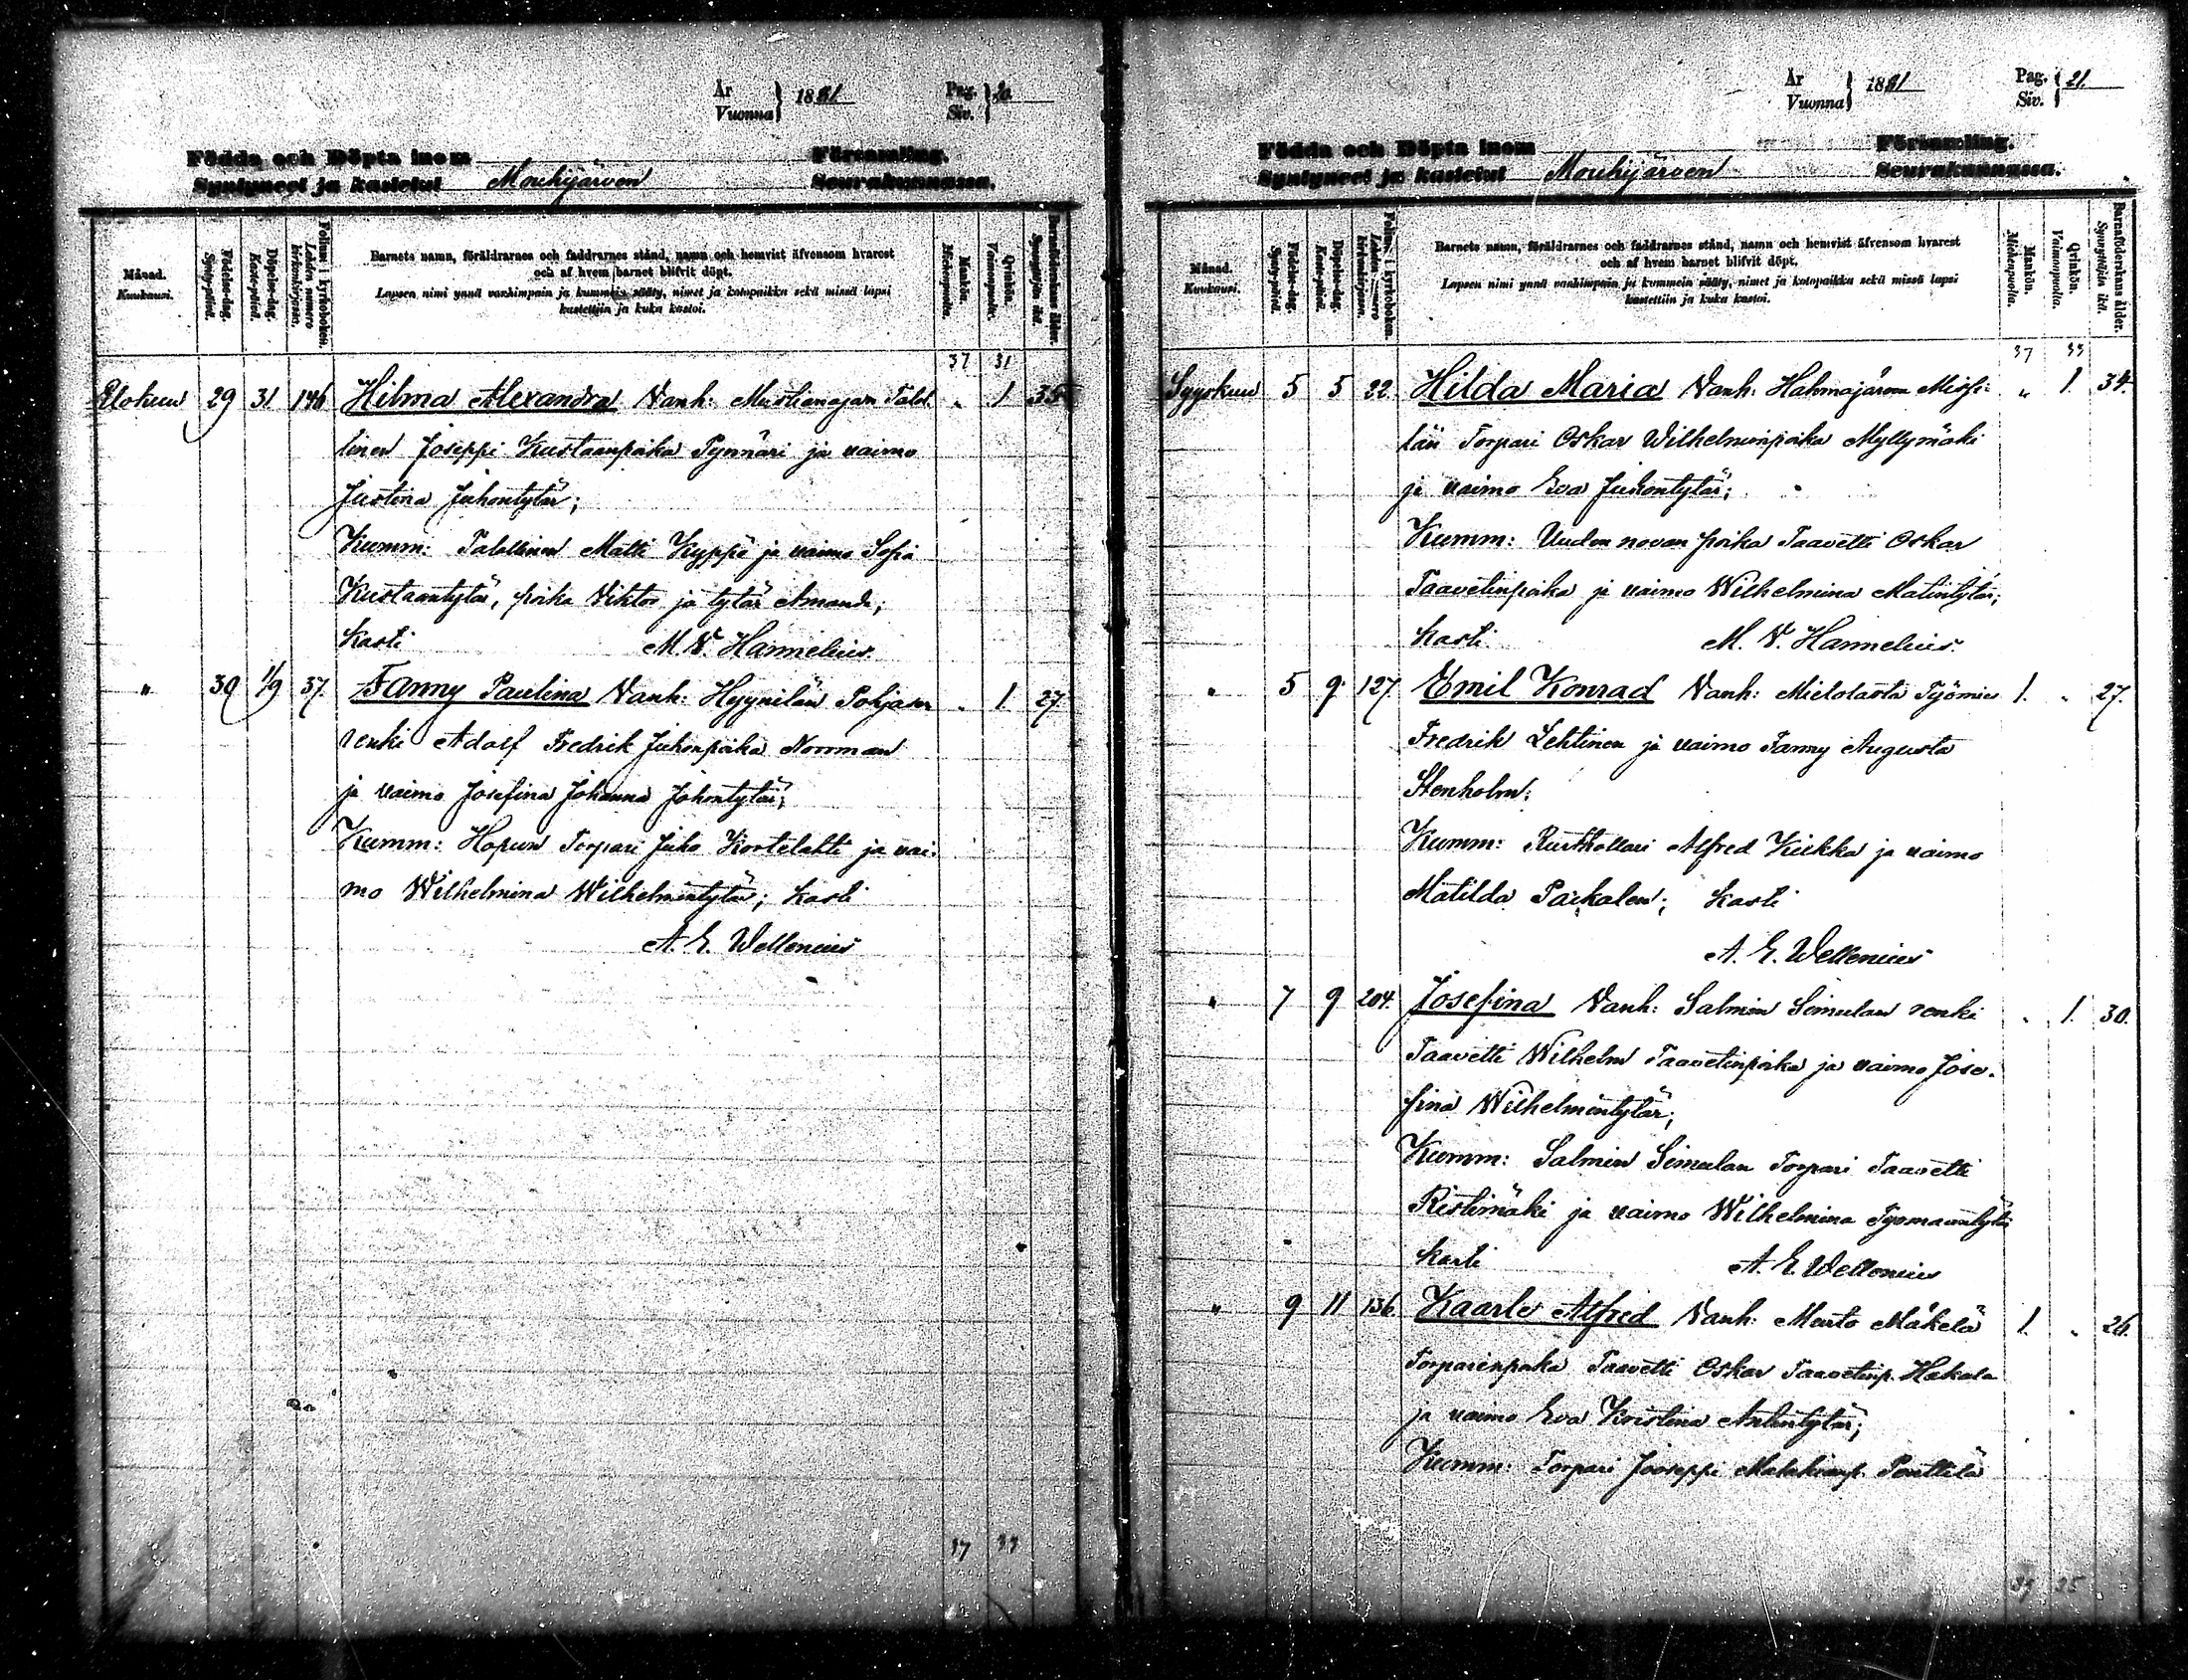 År
Vuonna } 1881
Pag.
Siv. } 20.
Födda och Döpta inom Församling.
Syntyneet ja kastetut Mouhijärven Seurakunnassa.
Månad.
Kuukausi.
Födelse-dag.
Synty-päivä.
Döpelse-dag.
Kaste-päivä.
Folium i kyrkoboken.
Lehden numero kirkonkirjassa.
Barnets namn, föräldrarnes och faddrarnes stånd, namn och hemvist äfvensom hvarest
och af hvem barnet blifvit döpt.
Lapsen nimi ynnä vanhimpain ja kummein sääty, nimet ja kotopaikka sekä missä lapsi
kastettiin ja kuka kastoi.
Mankön.
Miehenpuolia.
Qvinkön.
Vaimonpuolia.
Barnaföderskans ålder.
Synnyttäjän ikä.
37 31
Elokuu 29 31 146 Hilma Alexandra Vanh: Mustianojan Talol. „ 1 35
linen Joseppi Kustaanpoika Pynnäri ja vaimo
Justina Juhontytär;
Kumm: Talollinen Matti Kyppi ja vaimo Sofia
Kustaantytär, poika Viktor ja tytär Amanda;
Kasti M. V. Hannelius.
„ 30 1/9 37. Fanny Paulina Vanh: Hyynilän Pohjan „ 1 27.
renki Adolf Fredrik Juhonpoika Norrman
ja vaimo Josefina Johanna Johontytär;
Kumm: Hopun Torpari Juho Kortelahti ja vai-
mo Wilhelmina Wilhelmintytär; Kasti
A. E. Wellenius
37 33
År
Vuonna } 1881
Pag.
Siv. } 21.
Födda och Döpta inom Församling.
Syntyneet ja kastetut Mouhijärven Seurakunnassa.
Månad.
Kuukausi.
Födelse-dag.
Synty-päivä.
Döpelse-dag.
Kaste-päivä.
Folium i kyrkoboken.
Lehden numero kirkonkirjassa.
Barnets namn, föräldrarnes och faddrarnes stånd, namn och hemvist äfvensom hvarest
och af hvem barnet blifvit döpt.
Lapsen nimi ynnä vanhimpain ja kummein sääty, nimet ja kotopaikka sekä missä lapsi
kastettiin ja kuka kastoi.
Mankön.
Miehenpuolia.
Qvinkön.
Vaimonpuolia.
Barnaföderskans ålder.
Synnyttäjän ikä.
37 33
Syyskuu 5 5 22. Hilda Maria Vanh: Hahmajärven „ 1. 34.
Torpari Oskar Wilhelminpoika Myllymäki
ja vaimo Eva Juhontytär;
Kumm: Uuden novan poika Taavetti Oskar
Taavetinpoika ja vaimo Wilhelmina Matintytär;
Kasti M. V. Hannelius.
„ 5 9. 127. Emil Konrad Vanh: Mielolasta Työmies 1. „ 27.
Fredrik Lehtinen ja vaimo Fanny Augusta
Stenholm;
Kumm: Rusthollari Alfred Kiikka ja vaimo
Matilda Paikalen; Kasti
A. E. Wellenius
„ 7 9 204. Josefina Vanh: Salmin Simulan renki „ 1. 30.
Taavetti Wilhelm Taavetinpoika ja vaimo Jose-
fina Wilhelmintytär;
Kumm: Salmin Simulan Torpari Taavetti
Ristimäki ja vaimo Wilhelmina
Kasti A. E. Wellenius
„ 9 11 136. Kaarle Alfred Vanh: Murto Mäkelä 1. „ 26.
Torparinpoika Taavetti Oskar Taavetinp. Hakala
ja vaimo Eva Kristina Antintytär;
Kumm: Torpari Jooseppi Malakianp. Penttilä
39 35